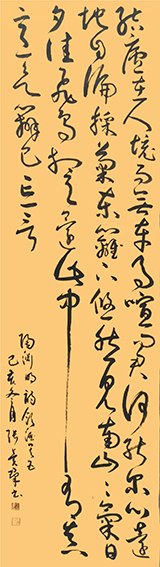 結廬在人境而無車馬喧問君何能尔心遠
地自偏採菊東籬下悠然見南山山氣日
夕佳飛鳥相與還此中有真
意欲辯已忘言
陶淵明詩飲酒之五
己亥冬月張書